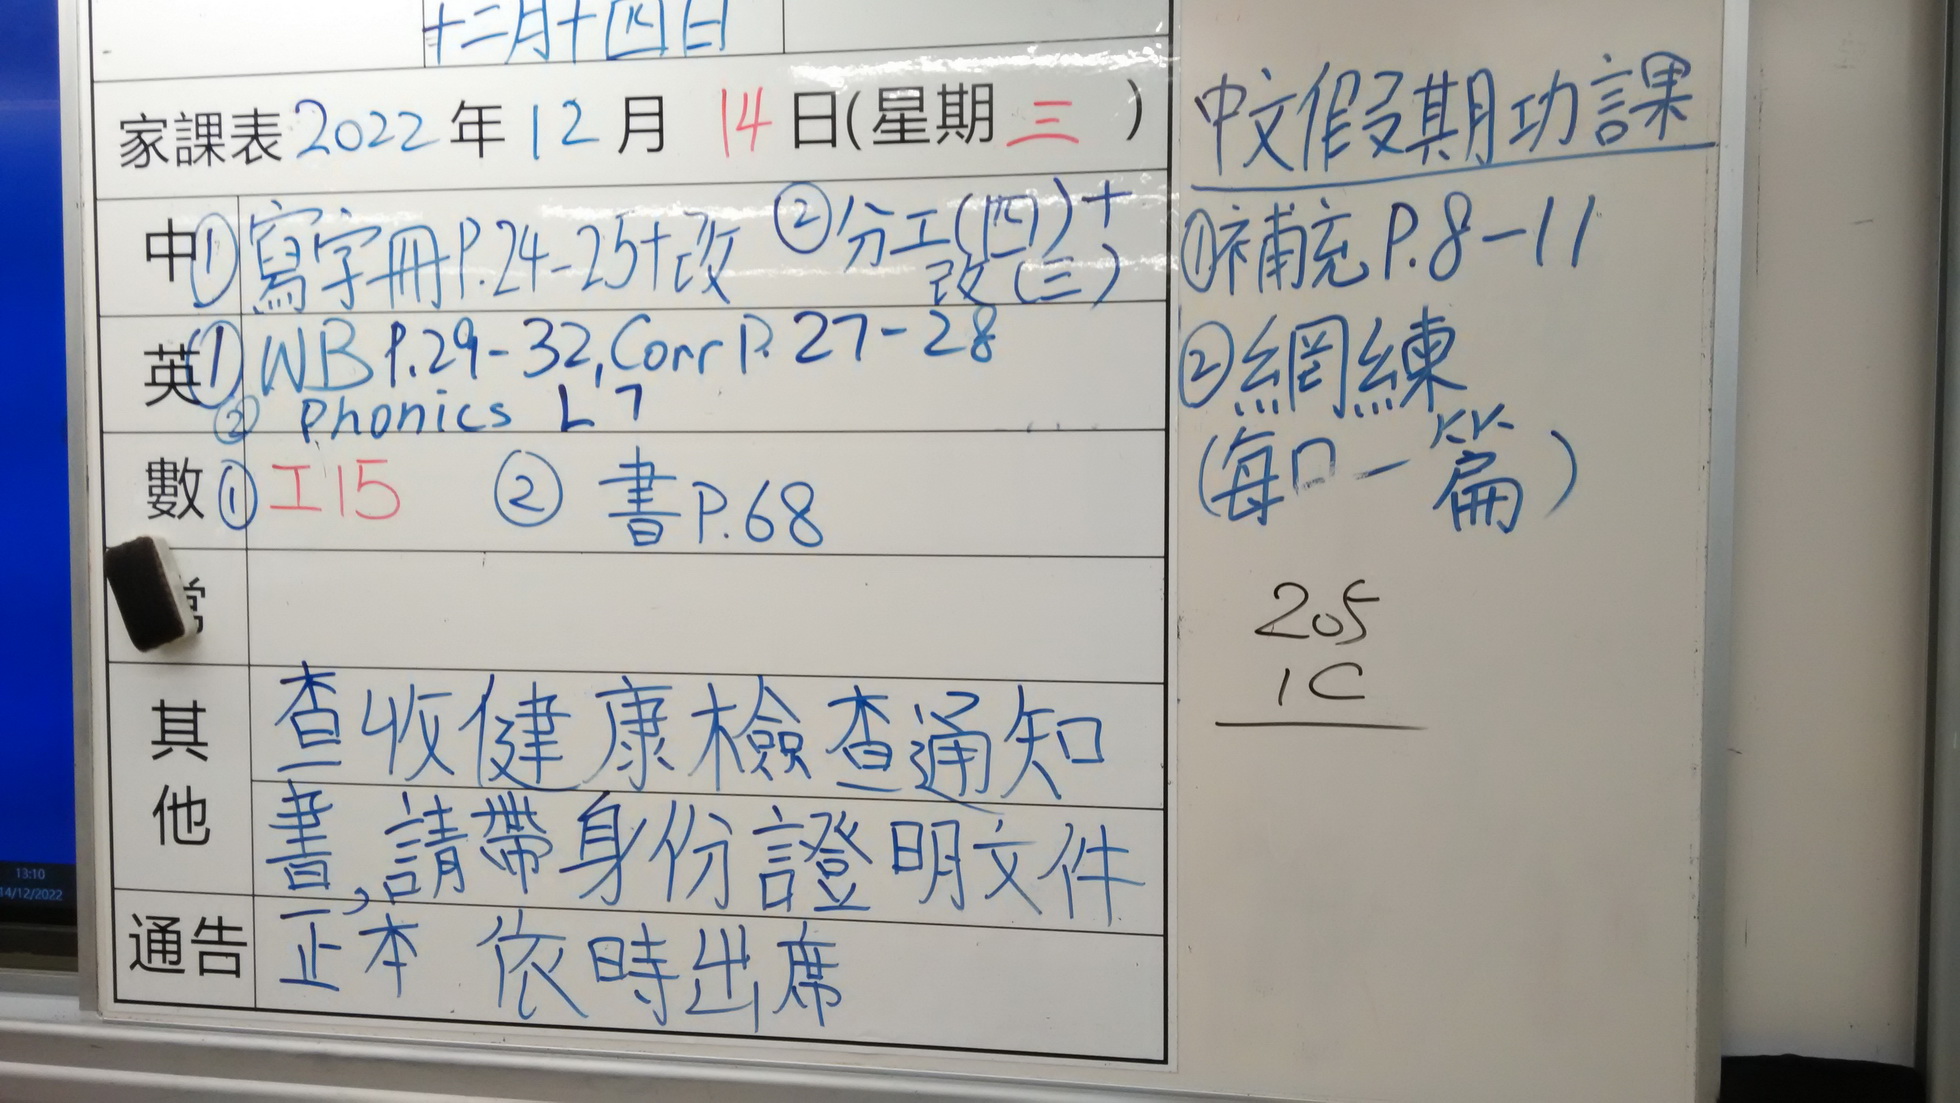 十二月十四日
家課表 2022 年 12 月 14 日(星期 三 )
中 ① 寫字冊 P.24-25+改 ② 分工(四)+
改(三)
英 ① WB P.29-32, Corr P. 27-28
② Phonics L7
數 ① 工15 ② 書 P.68
常
其他
查收健康檢查通知
書,請帶身份證明文件
通告 正本 依時出席
中文假期功課
①補充 P.8-11
②網練
(每日一篇)
205
1C
13:10
14/12/2022